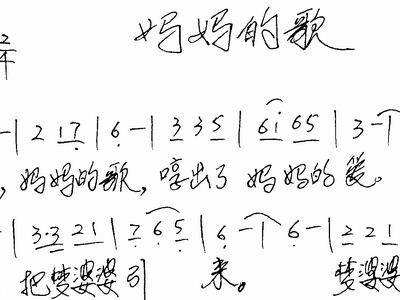 妈妈的歌
2/4
-| 2 17 | 6 -| 3 35 | 6i 65 | 3 -|
,妈妈的歌,哼出了妈妈的爱。
-| 3·3 21 | 7 6 5 | 6 -| 6 -| 2 21
把梦婆婆引 来。 梦婆婆